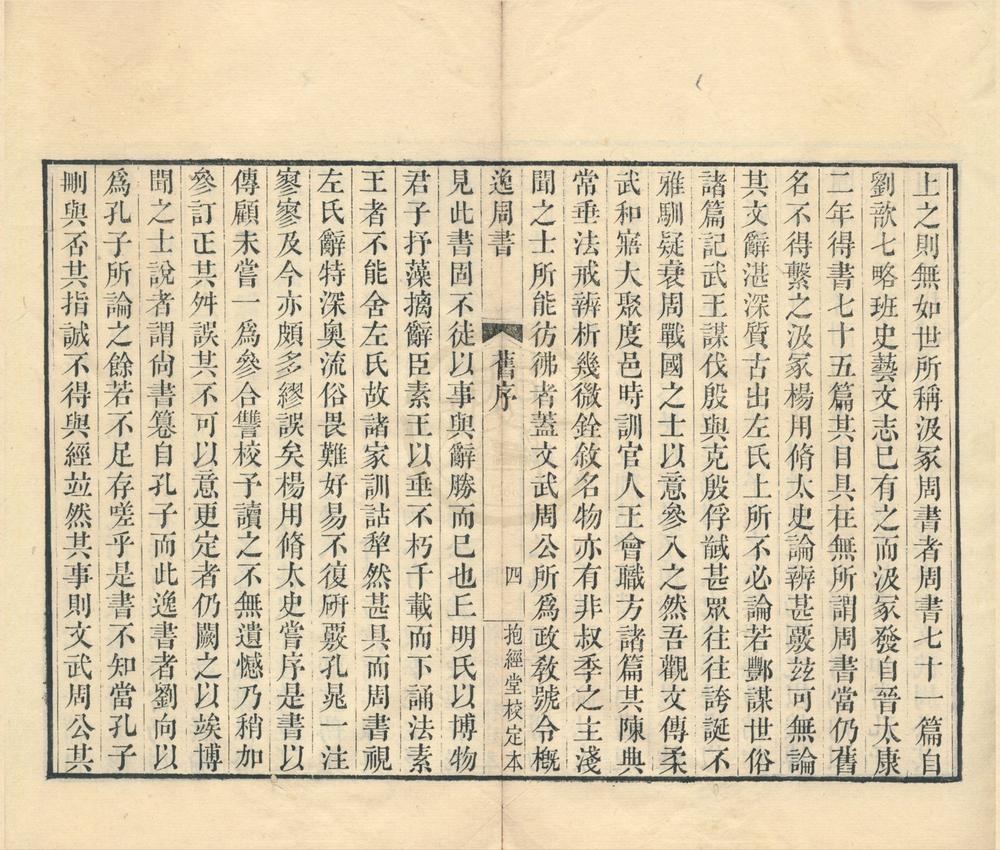 上之則無如世所稱汲冢周書者周書七十一篇自
劉歆七略班史藝文志已有之而汲冢發自晉太康
二年得書七十五篇其目具在無所謂周書當仍舊
名不得繫之汲冢楊用脩太史論辨甚覈玆可無論
其文辭湛深質古出左氏上所不必論若酆謀世俘
諸篇記武王謀伐殷與克殷俘馘甚眾往往誇誕不
雅馴疑衰周戰國之士以意參入之然吾觀文傳柔
武和寤大聚度邑時訓官人王會職方諸篇其陳典
常垂法戒辨析幾微銓敘名物亦有非叔季之主淺
聞之士所能彷彿者蓋文武周公所爲政敎號令槪
逸周書 舊序 四 抱經堂校定本
見此書固不徒以事與辭勝而已也丘明氏以博物
君子抒藻摛辭臣素王以垂不朽千載而下誦法素
王者不能舍左氏故諸家訓詁犂然甚具而周書視
左氏辭特深奧流俗畏難好易不復硏覈孔晁一注
寥寥及今亦頗多繆誤矣楊用脩太史嘗序是書以
傳顧未嘗一爲參合讐校予讀之不無遺憾乃稍加
參訂正其舛誤其不可以意更定者仍闕之以竢博
聞之士說者謂尙書刪自孔子而此逸書者劉向以
爲孔子所論之餘若不足存嗟乎是書不知當孔子
刪與否其指誠不得與經竝然其事則文武周公其